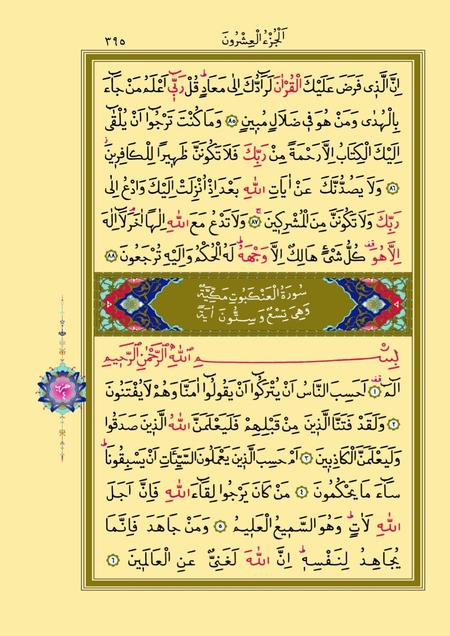 اَلْجُزْءُ الْعِشْرُونَ
٣٩٥
اِنَّ الَّذ۪ي فَرَضَ عَلَيْكَ الْقُرْاٰنَ لَرَٓادُّكَ اِلٰى مَعَادٍۜ قُلْ رَبّ۪ٓي اَعْلَمُ مَنْ جَٓاءَ
بِالْهُدٰى وَمَنْ هُوَ ف۪ي ضَلَالٍ مُب۪ينٍ ٨٥ وَمَا كُنْتَ تَرْجُٓوا اَنْ يُلْقٰٓى
اِلَيْكَ الْكِتَابُ اِلَّا رَحْمَةً مِنْ رَبِّكَ فَلَا تَكُونَنَّ ظَه۪يرًا لِلْكَافِر۪ينَۘ
٨٦ وَلَا يَصُدُّنَّكَ عَنْ اٰيَاتِ اللّٰهِ بَعْدَ اِذْ اُنْزِلَتْ اِلَيْكَ وَادْعُ اِلٰى
رَبِّكَ وَلَا تَكُونَنَّ مِنَ الْمُشْرِك۪ينَۚ ٨٧ وَلَا تَدْعُ مَعَ اللّٰهِ اِلٰهًا اٰخَرَۢ لَٓا اِلٰهَ
اِلَّا هُوَ۠ كُلُّ شَيْءٍ هَالِكٌ اِلَّا وَجْهَهُۜ لَهُ الْحُكْمُ وَاِلَيْهِ تُرْجَعُونَ ٨٨
سُورَةُ الْعَنْكَبُوتِ مَكِّيَّةٌ
وَهِيَ تِسْعٌ وَسِتُّونَ اٰيَةً
بِسْمِ اللّٰهِ الرَّحْمٰنِ الرَّح۪يمِ
الٓمٓ ۠ ١ اَحَسِبَ النَّاسُ اَنْ يُتْرَكُٓوا اَنْ يَقُولُٓوا اٰمَنَّا وَهُمْ لَا يُفْتَنُونَ
٢ وَلَقَدْ فَتَنَّا الَّذ۪ينَ مِنْ قَبْلِهِمْ فَلَيَعْلَمَنَّ اللّٰهُ الَّذ۪ينَ صَدَقُوا
وَلَيَعْلَمَنَّ الْكَاذِب۪ينَ ٣ اَمْ حَسِبَ الَّذ۪ينَ يَعْمَلُونَ السَّيِّـَٔاتِ اَنْ يَسْبِقُونَاۜ
سَٓاءَ مَا يَحْكُمُونَ ٤ مَنْ كَانَ يَرْجُوا لِقَٓاءَ اللّٰهِ فَاِنَّ اَجَلَ
اللّٰهِ لَاٰتٍۜ وَهُوَ السَّم۪يعُ الْعَل۪يمُ ٥ وَمَنْ جَاهَدَ فَاِنَّمَا
يُجَاهِدُ لِنَفْسِه۪ۜ اِنَّ اللّٰهَ لَغَنِيٌّ عَنِ الْعَالَم۪ينَ ٦